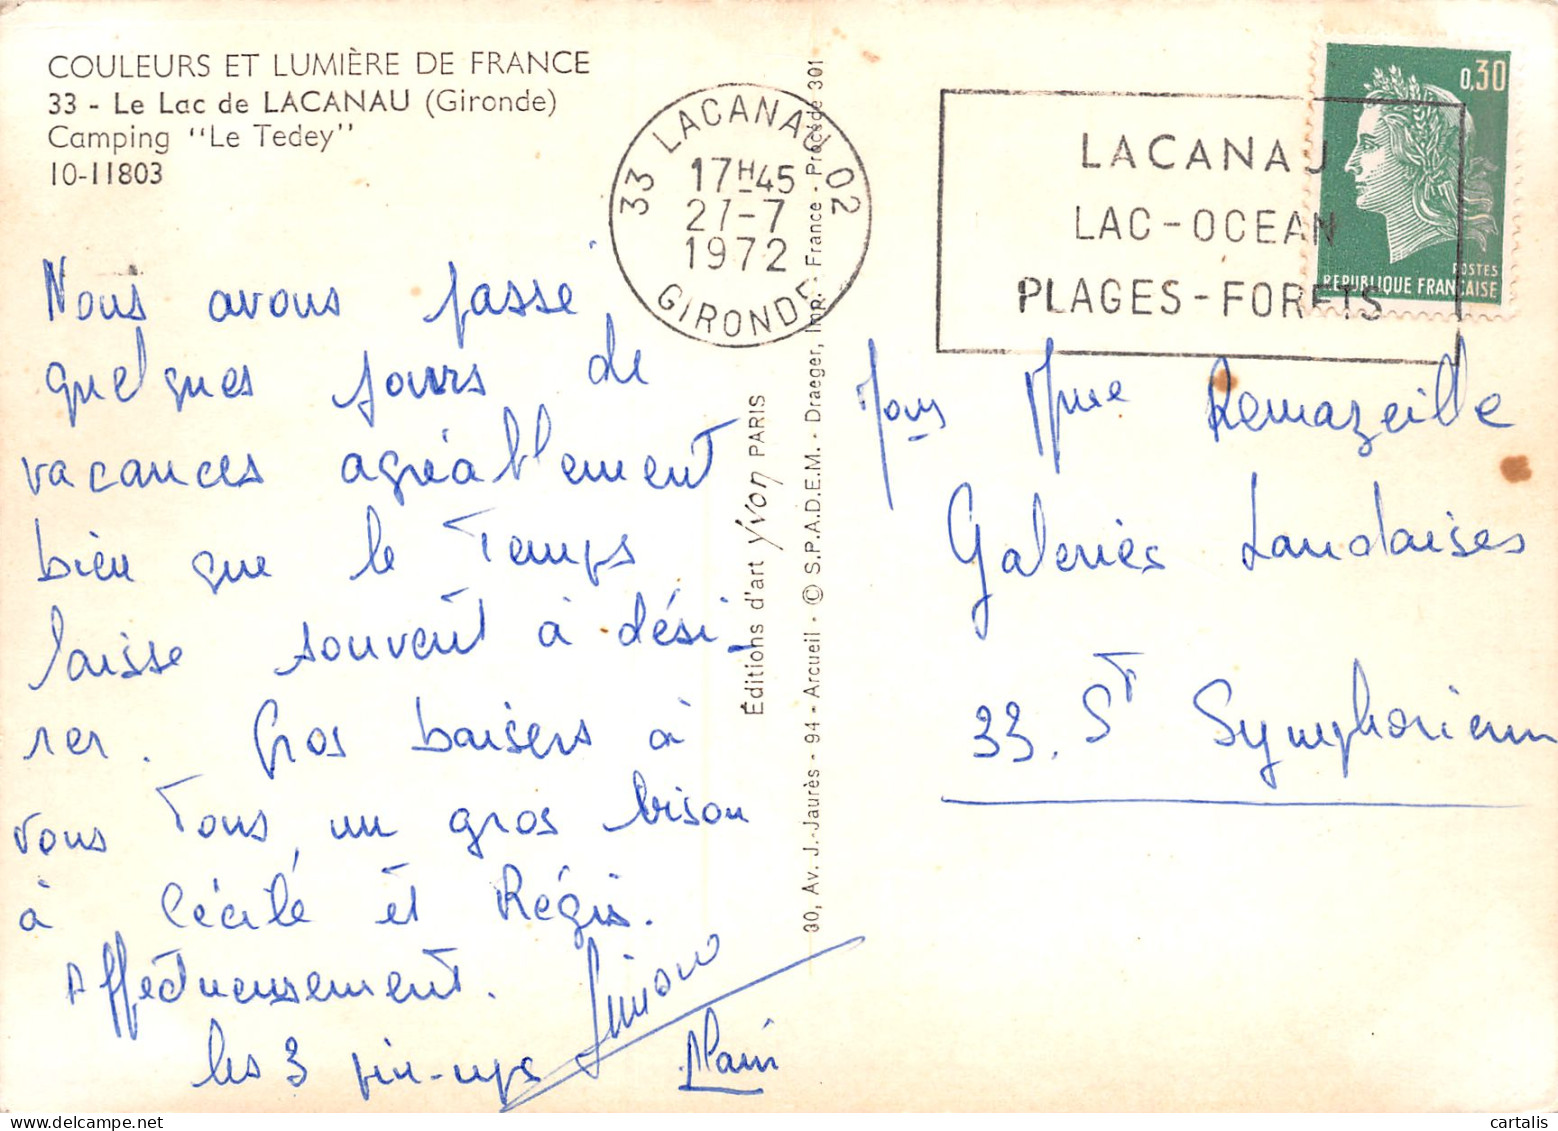 COULEURS ET LUMIÈRE DE FRANCE
33 - Le Lac de LACANAU (Gironde)
Camping "Le Tedey"
10-11803
33 LACANAU 02
17H45
27-7
1972
GIRONDE
LACANAU
LAC-OCEAN
PLAGES-FORETS
0,30
POSTES
REPUBLIQUE FRANÇAISE
Nous avons passé
quelques jours de
vacances agréablement
bien que le temps
laisse souvent à dési-
rer. Gros baisers à
vous tous, un gros bison
à Cécile et Régis.
Affectueusement.
les 3 pin-ups
Alain
Éditions d'art Yvon PARIS
30, Av. J.-Jaurès - 94 - Arcueil - © S.P.A.D.E.M. - Draeger, Imp. - France - Procédé 301
Mme Remazeille
Galeries Landaises
33. St Symphorien
cartalis